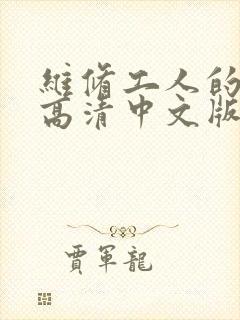 維脩工人的
高清中文版
賈軍龍